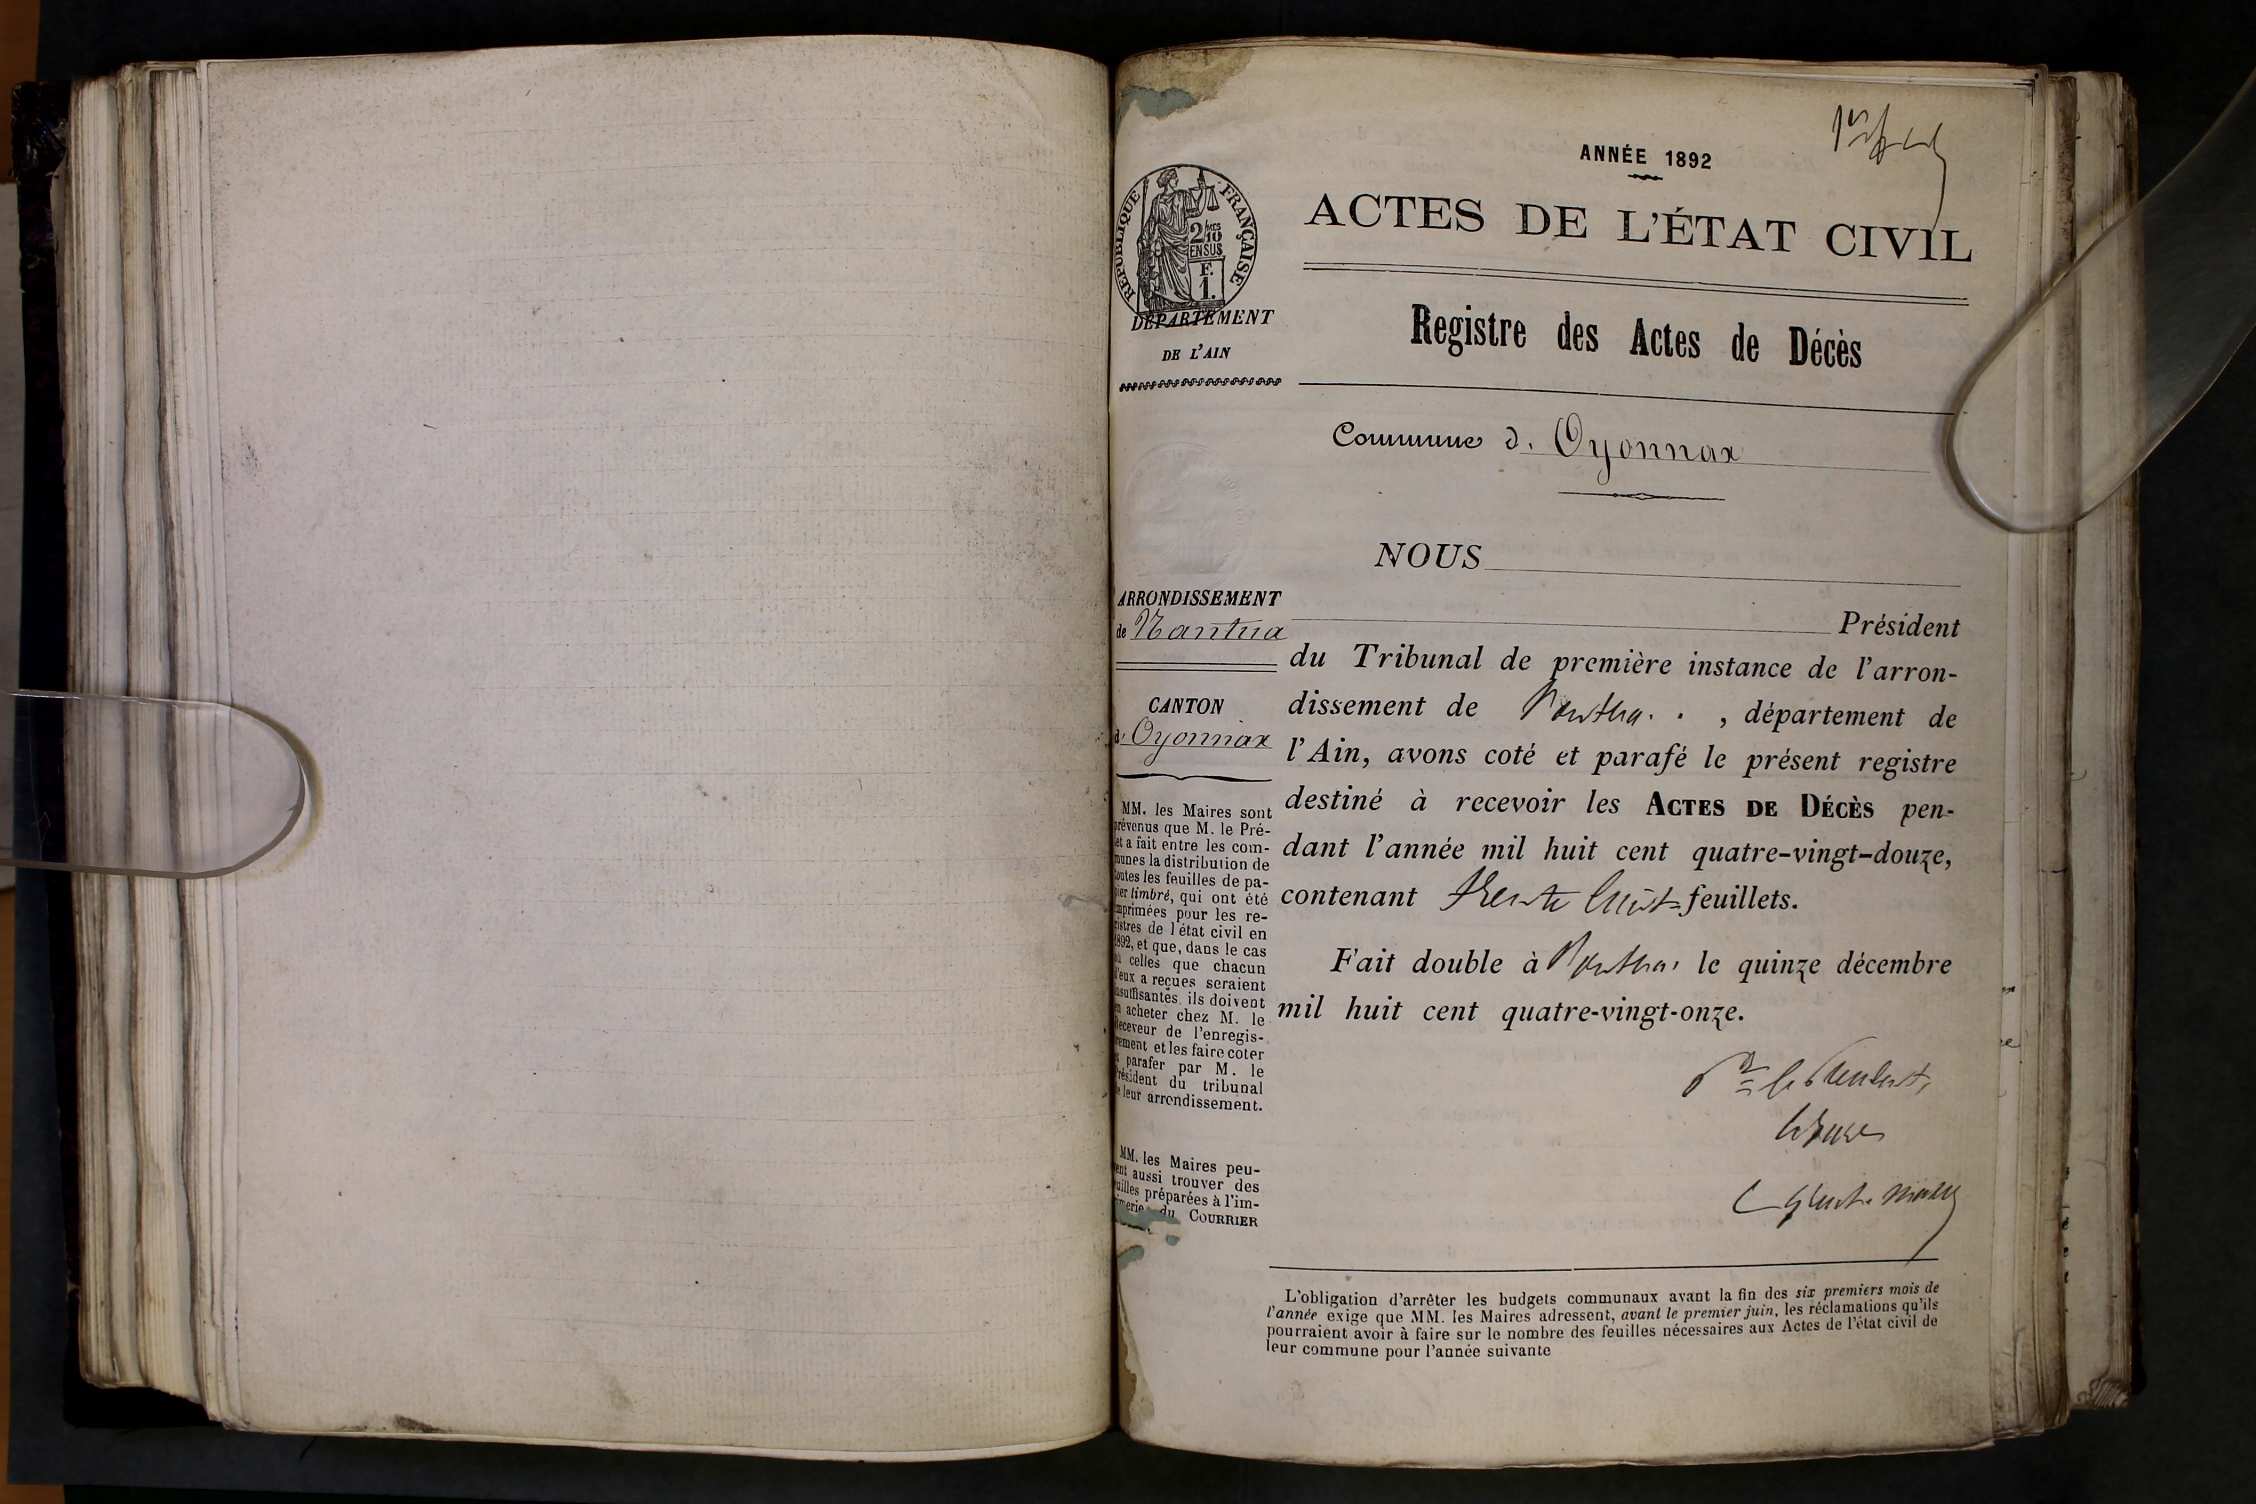 ANNÉE 1892
ACTES DE L'ÉTAT CIVIL
RÉPUBLIQUE FRANÇAISE
2/10
EN SUS
F.
1.
DÉPARTEMENT
DE L'AIN
Registre des Actes de Décès
Commune d' Oyonnax
NOUS
Président
du Tribunal de première instance de l'arron-
dissement de Nantua , département de
l'Ain, avons coté et parafé le présent registre
destiné à recevoir les ACTES DE DÉCÈS pen-
dant l'année mil huit cent quatre-vingt-douze,
contenant trente huit feuillets.
Fait double à Nantua le quinze décembre
mil huit cent quatre-vingt-onze.
Pr le Président,
ARRONDISSEMENT
de Nantua
CANTON
d' Oyonnax
MM. les Maires sont
prévenus que M. le Pré-
fet a fait entre les com-
munes la distribution de
toutes les feuilles de pa-
pier timbré, qui ont été
imprimées pour les re-
gistres de l'état civil en
1892, et que, dans le cas
où celles que chacun
d'eux a reçues seraient
insuffisantes, ils doivent
en acheter chez M. le
Receveur de l'enregis-
trement et les faire coter
et parafer par M. le
Président du tribunal
de leur arrondissement.
MM. les Maires peu-
vent aussi trouver des
feuilles préparées à l'im-
primerie du COURRIER
L'obligation d'arrêter les budgets communaux avant la fin des six premiers mois de
l'année exige que MM. les Maires adressent, avant le premier juin, les réclamations qu'ils
pourraient avoir à faire sur le nombre des feuilles nécessaires aux Actes de l'état civil de
leur commune pour l'année suivante